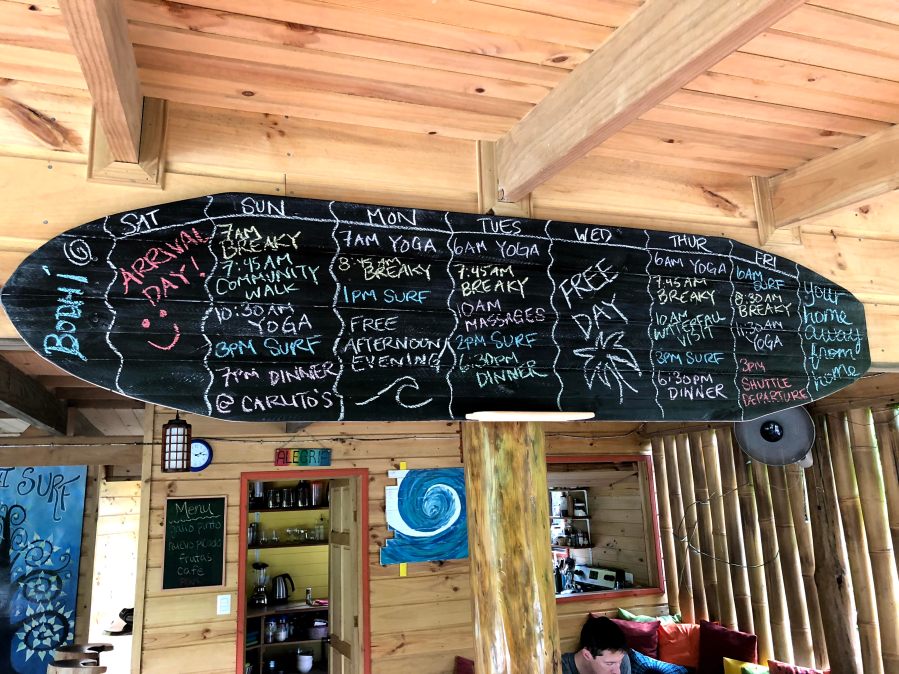 Bodhi
SAT
ARRIVAL
DAY!
SUN
7AM
BREAKY
7:45AM
COMMUNITY
WALK
10:30AM
YOGA
3PM SURF
7PM DINNER
@ CARLITOS
MON
7AM YOGA
8:45AM
BREAKY
1PM SURF
FREE
AFTERNOON/
EVENING
TUES
6AM YOGA
7:45AM
BREAKY
10AM
MASSAGES
2PM SURF
6:30PM
DINNER
WED
FREE
DAY
THUR
6AM YOGA
7:45AM
BREAKY
10AM
WATERFALL
VISIT
3PM SURF
6:30PM
DINNER
FRI
6AM
SURF
8:30AM
BREAKY
11:30AM
YOGA
3PM
SHUTTLE
DEPARTURE
your
home
away
from
home
ALEGRIA
SURF
Menu
gallo pinto
Frutas
Cafe